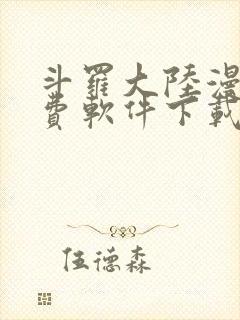 斗羅大陸漫
費軟件下載
伍德森